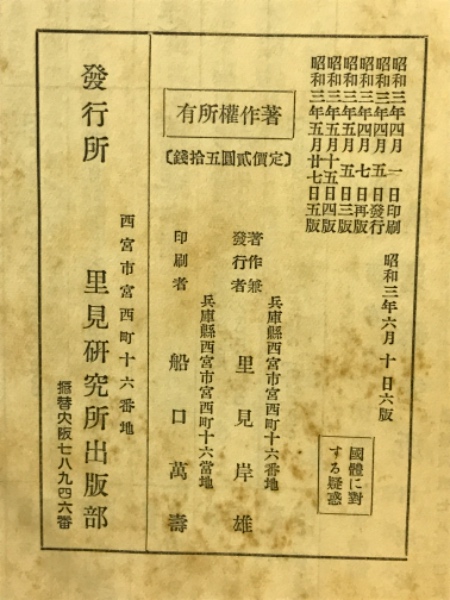 國體に對
する疑惑
昭和三年四月一日印刷
昭和三年四月五日發行
昭和三年四月七日再版
昭和三年五月五日三版
昭和三年五月十五日四版
昭和三年五月廿七日五版
昭和三年六月十日六版
著作權所有
〔定價貳圓五拾錢〕
兵庫縣西宮市宮西町十六番地
著作兼
發行者
里見岸雄
兵庫縣西宮市宮西町十六當地
印刷者
船口萬壽
西宮市宮西町十六番地
發行所
里見研究所出版部
振替大阪七八九四六番